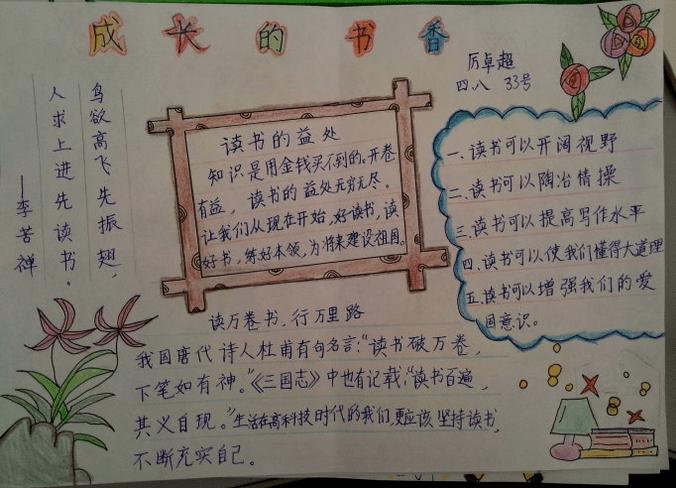 成长的书香
厉卓超
四.八 33号
鸟欲高飞先振翅，
人求上进先读书。
——李苦禅
读书的益处
知识是用金钱买不到的。开卷
有益，读书的益处无穷无尽。
让我们从现在开始，好读书，读
好书，练好本领，为将来建设祖国。
一.读书可以开阔视野
二.读书可以陶冶情操
三.读书可以提高写作水平
四.读书可以使我们懂得大道理
五.读书可以增强我们的爱
国意识。
读万卷书，行万里路
我国唐代诗人杜甫有句名言："读书破万卷，
下笔如有神。"《三国志》中也有记载："读书百遍，
其义自现。"生活在高科技时代的我们，更应该坚持读书，
不断充实自己。